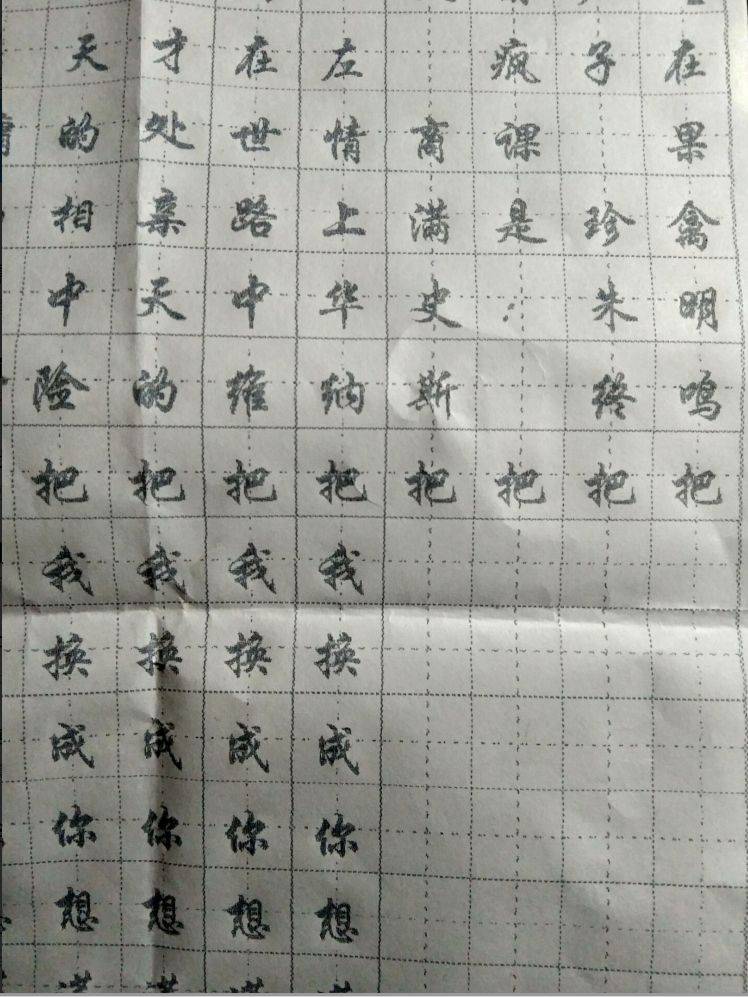 天才在左 疯子在
的处世情商课 果
相亲路上满是珍禽
中天中华史:朱明
险的维纳斯 终鸣
把把把把把把把把
我我我我
换换换换
成成成成
你你你你
想想想想